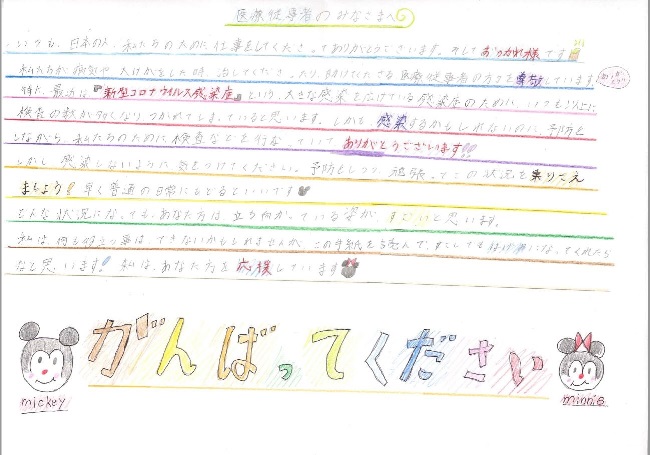 医療従事者のみなさまへ
いつも、日本の人、私たちのために仕事をしてくださってありがとうございます。そしておつかれ様です
私たちが病気や大けがをした時、治してくださったり、助けてくださる医療従事者の方々を尊敬しています。
特に、最近は『新型コロナウイルス感染症』という、大きな感染を広げている感染症のために、いつも以上に
検査の数が多くなり、つかれてしまっていると思います。しかも、感染するかもしれないのに、予防を
しながら、私たちのために検査などを行なっていてありがとうございます!!
しかし、感染しないように気をつけてください。予防をしつつ、頑張ってこの状況を乗りこえ
ましょう!早く普通の日常にもどるといいです
こんな状況になっても、あなた方は、立ち向かっている姿が、すごいと思います。
私は、何も役立つ事はできないかもしれませんが、この手紙を読んで、すこしでもはげみになってくれたら
なと思います!私は、あなた方を応援しています
がんばってください
mickey
minnie